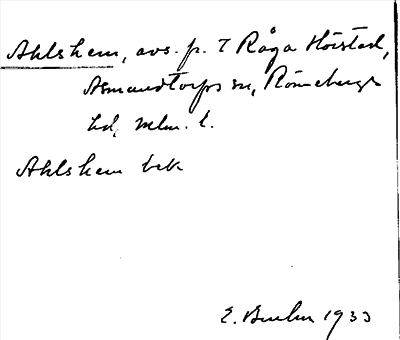 Ahlshem, avs. fr. 7 Råga Hörstad,
Asmundtorps sn, Rönnebergs
hd, Mlm. l.
Ahlshem bek
E. Buhr 1933